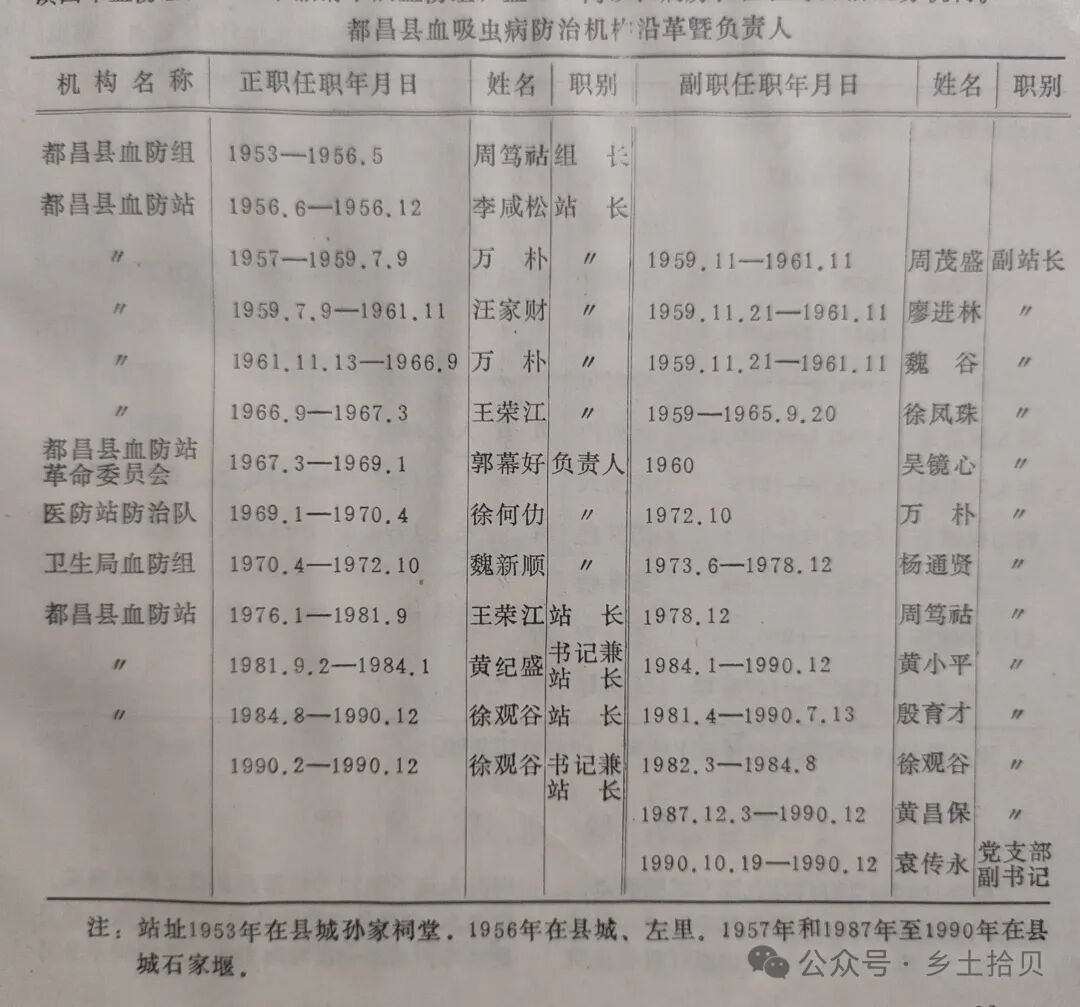 都昌县血吸虫病防治机构沿革暨负责人
机构名称 正职任职年月日 姓名 职别 副职任职年月日 姓名 职别
都昌县血防组 1953—1956.5 周笃祜 组长
都昌县血防站 1956.6—1956.12 李咸松 站长
〃 1957—1959.7.9 万朴 〃 1959.11—1961.11 周茂盛 副站长
〃 1959.7.9—1961.11 汪家财 〃 1959.11.21—1961.11 廖进林 〃
〃 1961.11.13—1966.9 万朴 〃 1959.11.21—1961.11 魏谷 〃
〃 1966.9—1967.3 王荣江 〃 1959—1965.9.20 徐凤珠 〃
都昌县血防站
革命委员会 1967.3—1969.1 郭幕好 负责人 1960 吴镜心 〃
医防站防治队 1969.1—1970.4 徐何仂 〃 1972.10 万朴 〃
卫生局血防组 1970.4—1972.10 魏新顺 〃 1973.6—1978.12 杨通贤 〃
都昌县血防站 1976.1—1981.9 王荣江 站长 1978.12 周笃祜 〃
〃 1981.9.2—1984.1 黄纪盛 书记兼 1984.1—1990.12 黄小平 〃
站长
〃 1984.8—1990.12 徐观谷 站长 1981.4—1990.7.13 殷育才 〃
1990.2—1990.12 徐观谷 书记兼 1982.3—1984.8 徐观谷 〃
站长
1987.12.3—1990.12 黄昌保 〃
1990.10.19—1990.12 袁传永 党支部
副书记
注：站址1953年在县城孙家祠堂．1956年在县城、左里．1957年和1987年至1990年在县
城石家堰．
公众号·乡土拾贝